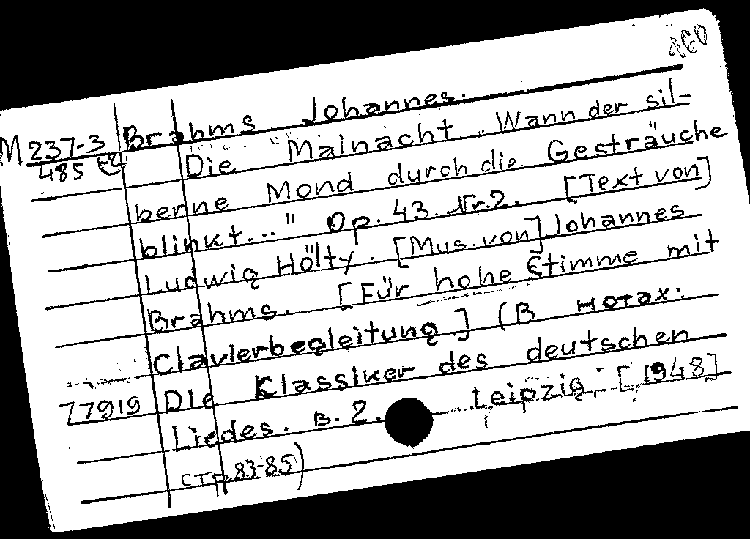 460
M 237-3 Brahms Johannes.
485 Die "Mainacht. Wann der sil-
berne Mond durch die Gesträuche
blinkt..." Op. 43. Nr.2. [Text von]
Ludwig Hölty. [Mus. von] Johannes
Brahms. [Für hohe Stimme mit
Clavierbegleitung] (В нотах:
77919 Die Klassiker des deutschen
Liedes. B. 2. Leipzig. [1948]
стр. 83-85)